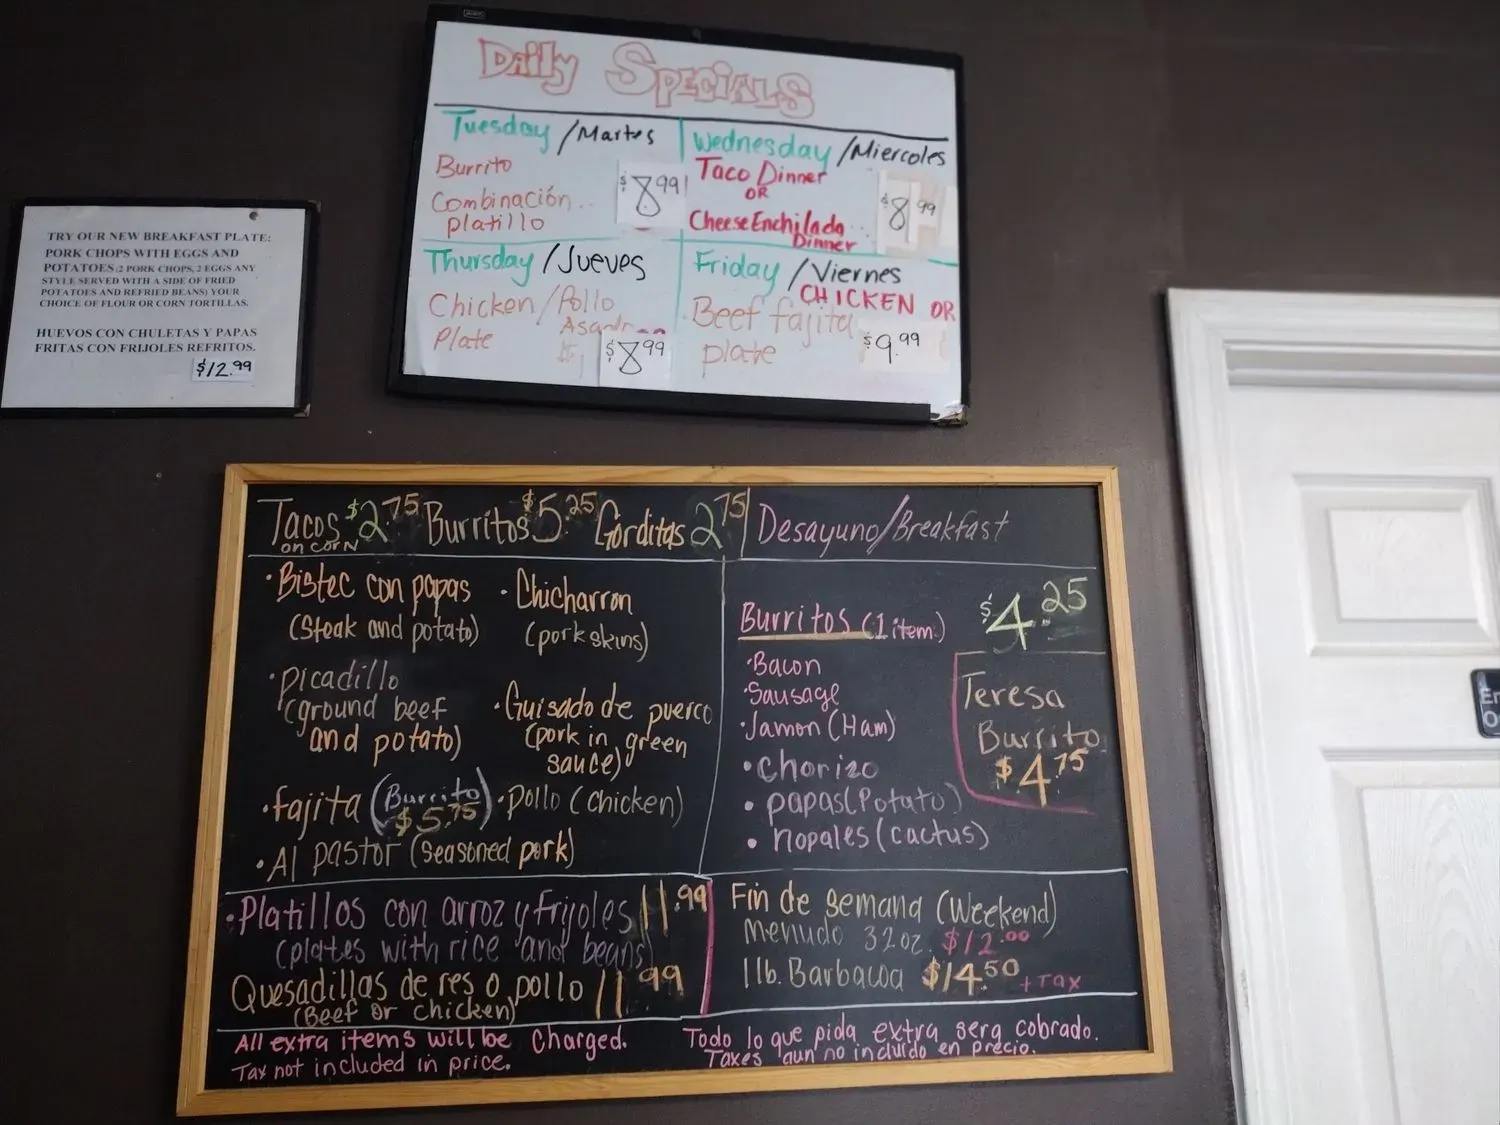 TRY OUR NEW BREAKFAST PLATE:
PORK CHOPS WITH EGGS AND
POTATOES (2 PORK CHOPS, 2 EGGS ANY
STYLE SERVED WITH A SIDE OF FRIED
POTATOES AND REFRIED BEANS) YOUR
CHOICE OF FLOUR OR CORN TORTILLAS.
HUEVOS CON CHULETAS Y PAPAS
FRITAS CON FRIJOLES REFRITOS.
$12.99
Daily Specials
Tuesday / Martes
Burrito
Combinación
platillo
$8.99
Wednesday / Miercoles
Taco Dinner
OR
Cheese Enchilada
Dinner
$8.99
Thursday / Jueves
Chicken / Pollo
Plate
$8.99
Friday / Viernes
CHICKEN OR
Beef fajita
plate
$9.99
Tacos $2.75 Burritos $5.25 Gorditas 2.75
on corn
• Bistec con papas
(Steak and potato)
• Picadillo
(ground beef
and potato)
• fajita (Burrito
$5.75)
• Al pastor (seasoned pork)
• Chicharron
(pork skins)
• Guisado de puerco
(pork in green
sauce)
• pollo (chicken)
Desayuno/Breakfast
Burritos (1 item) $4.25
• Bacon
• Sausage
• Jamon (Ham)
• Chorizo
• papas (Potato)
• nopales (cactus)
Teresa
Burrito
$4.75
• Platillos con arroz y frijoles 11.99
(plates with rice and beans)
Quesadillas de res o pollo 11.99
(Beef or chicken)
Fin de semana (Weekend)
Menudo 32oz. $12.00
1 lb. Barbacoa $14.50 + Tax
All extra items will be charged.
Tax not included in price.
Todo lo que pida extra sera cobrado.
Taxes aun no incluido en precio.